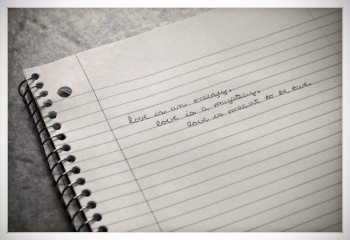 love is an energy.
love is a mystery.
love is meant to be true.